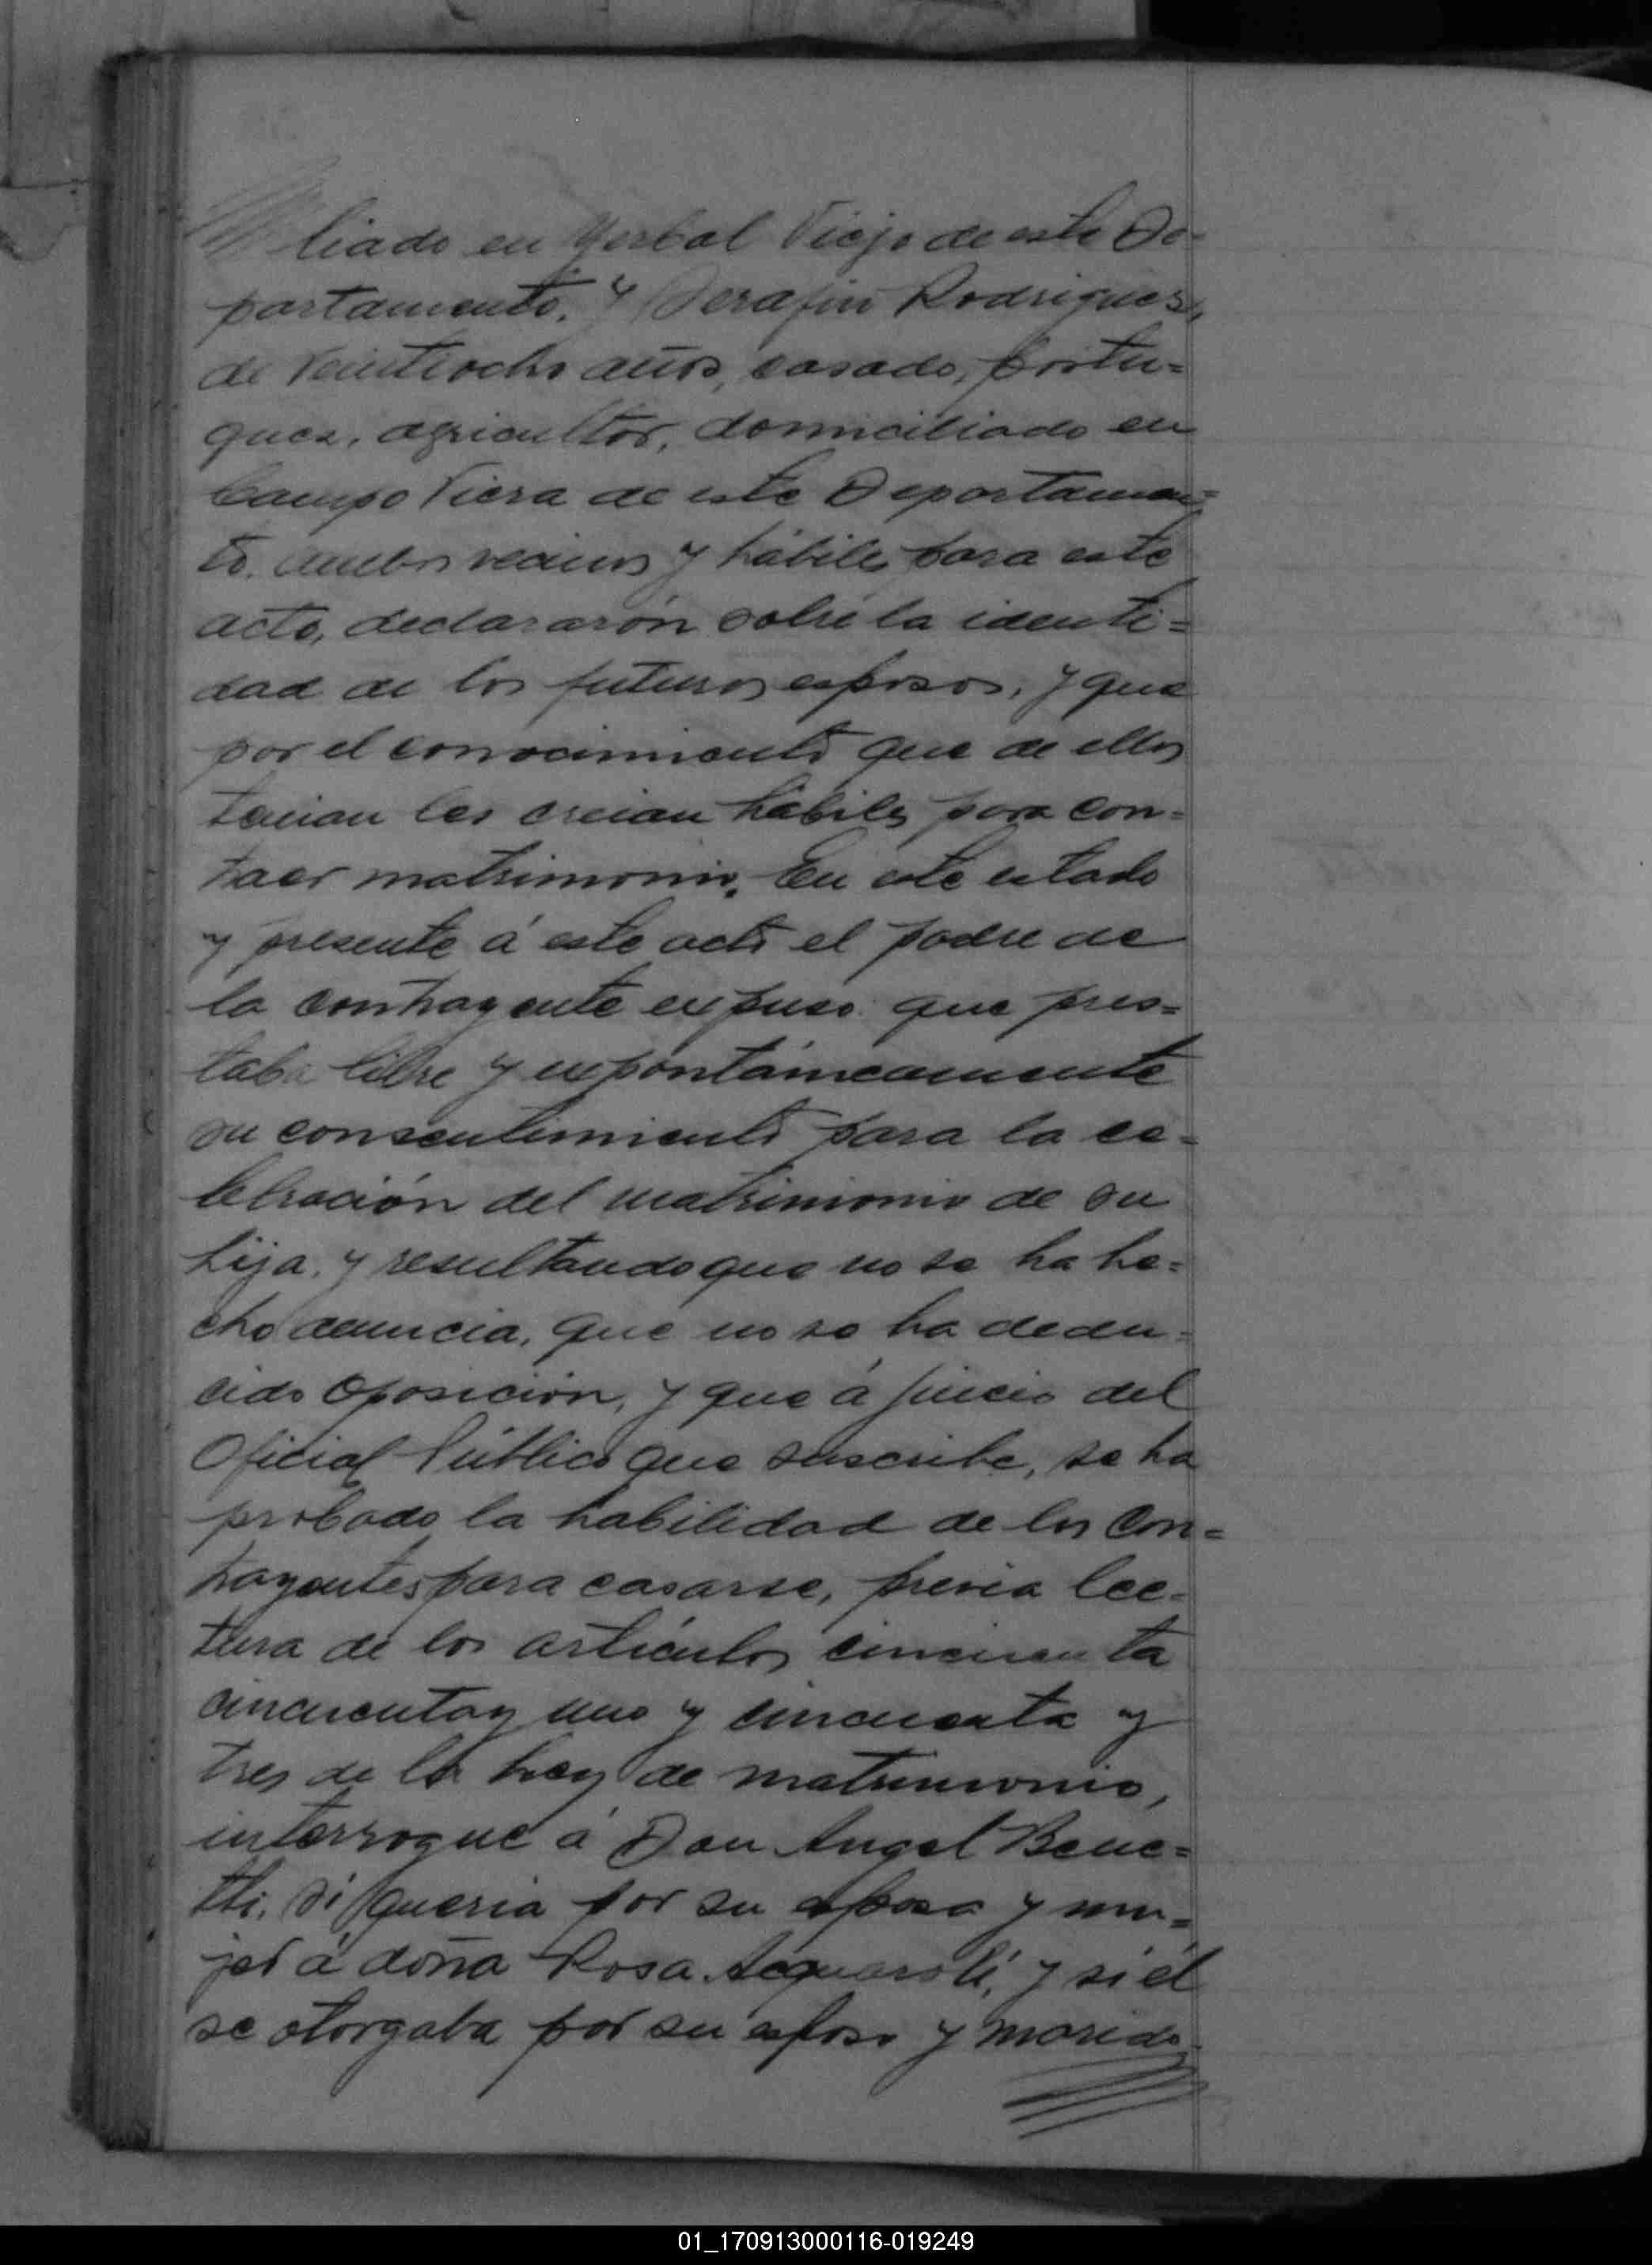 liado en Yerbal Viejo de este De-
partamento. Y Serafin Rodrigues,
de veintiocho años, casado, portu=
gues, agricultor, domiciliado en
Campo Viera de este Departamen=
to, ambos vecinos y hábiles para este
acto, declararón sobre la identi=
dad de los futuros esposos, y que
por el conocimiento que de ellos
tenian los creian hábiles para con=
traer matrimonio. En este estado
y presente á este acto el padre de
la contrayente expuso que pres=
taba libre y expontáneamente
su consentimiento para la ce=
lebración del matrimonio de su
hija, y resultando que no se ha he=
cho denuncia, que no se ha dedu=
cido oposición, y que á juicio del
Oficial Público que suscribe, se ha
probado la habilidad de los con=
trayentes para casarse, previa lec=
tura de los articulos cincuenta
cincuenta y uno y cincuenta y
tres de la Ley de matrimonio,
interrogué á Don Angel Bene=
tti, si queria por su esposa y mu=
jer á doña Rosa Acquaroli, y si él
se otorgaba por su esposo y marido
01_170913000116-019249